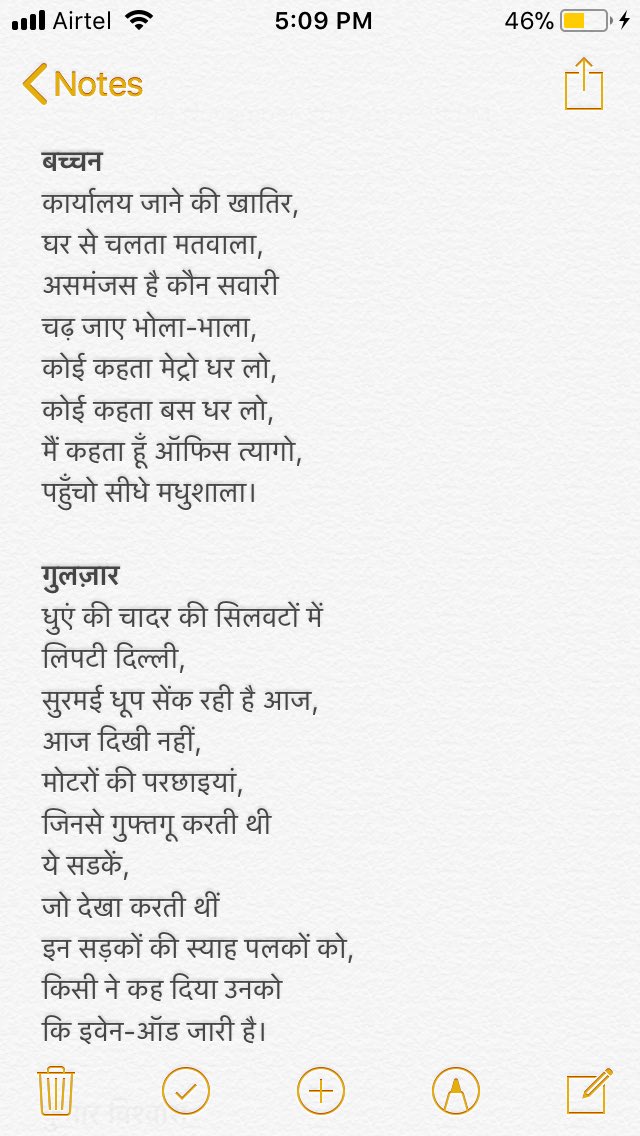 Airtel 5:09 PM 46%
Notes
बच्चन
कार्यालय जाने की खातिर,
घर से चलता मतवाला,
असमंजस है कौन सवारी
चढ़ जाए भोला-भाला,
कोई कहता मेट्रो धर लो,
कोई कहता बस धर लो,
मैं कहता हूँ ऑफिस त्यागो,
पहुँचो सीधे मधुशाला।
गुलज़ार
धुएं की चादर की सिलवटों में
लिपटी दिल्ली,
सुरमई धूप सेंक रही है आज,
आज दिखी नहीं,
मोटरों की परछाइयां,
जिनसे गुफ्तगू करती थी
ये सडकें,
जो देखा करती थीं
इन सड़कों की स्याह पलकों को,
किसी ने कह दिया उनको
कि इवेन-ऑड जारी है।